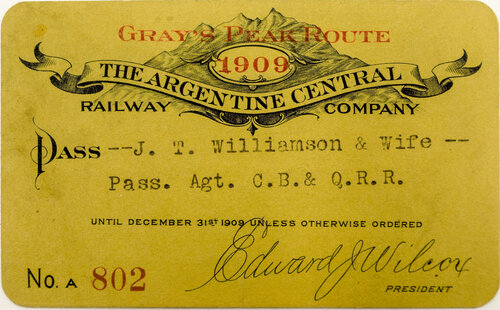 GRAY'S PEAK ROUTE
1909
THE ARGENTINE CENTRAL
RAILWAY COMPANY
PASS --J. T. Williamson & Wife --
Pass. Agt. C.B.& Q.R.R.
UNTIL DECEMBER 31ST 1909 UNLESS OTHERWISE ORDERED
No. A 802
Edward J Wilcox
PRESIDENT